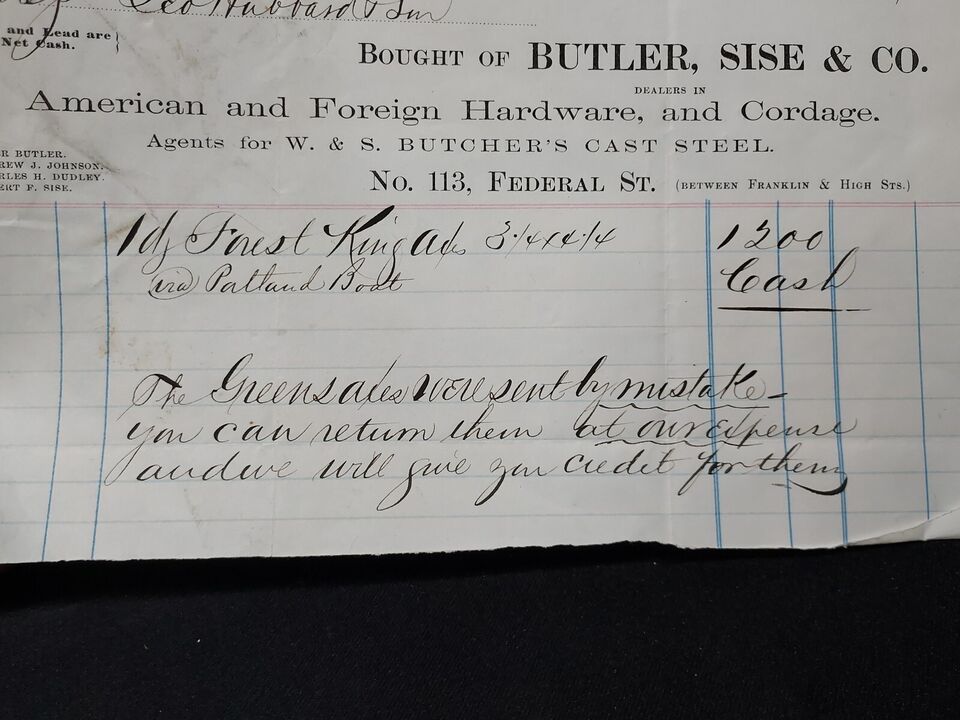 Geo Hubbard & Son
and Lead are
Net Cash.
BOUGHT OF BUTLER, SISE & CO.
DEALERS IN
American and Foreign Hardware, and Cordage.
Agents for W. & S. BUTCHER'S CAST STEEL.
R BUTLER.
REW J. JOHNSON.
RLES H. DUDLEY.
ERT F. SISE.
No. 113, FEDERAL ST. (BETWEEN FRANKLIN & HIGH STS.)
1 dz Forest King Axs 3 1/4 x 4 1/4 1200
via Portland Boat Cash
The Greens axes were sent by mistake -
you can return them at our expense
and we will give you credit for them